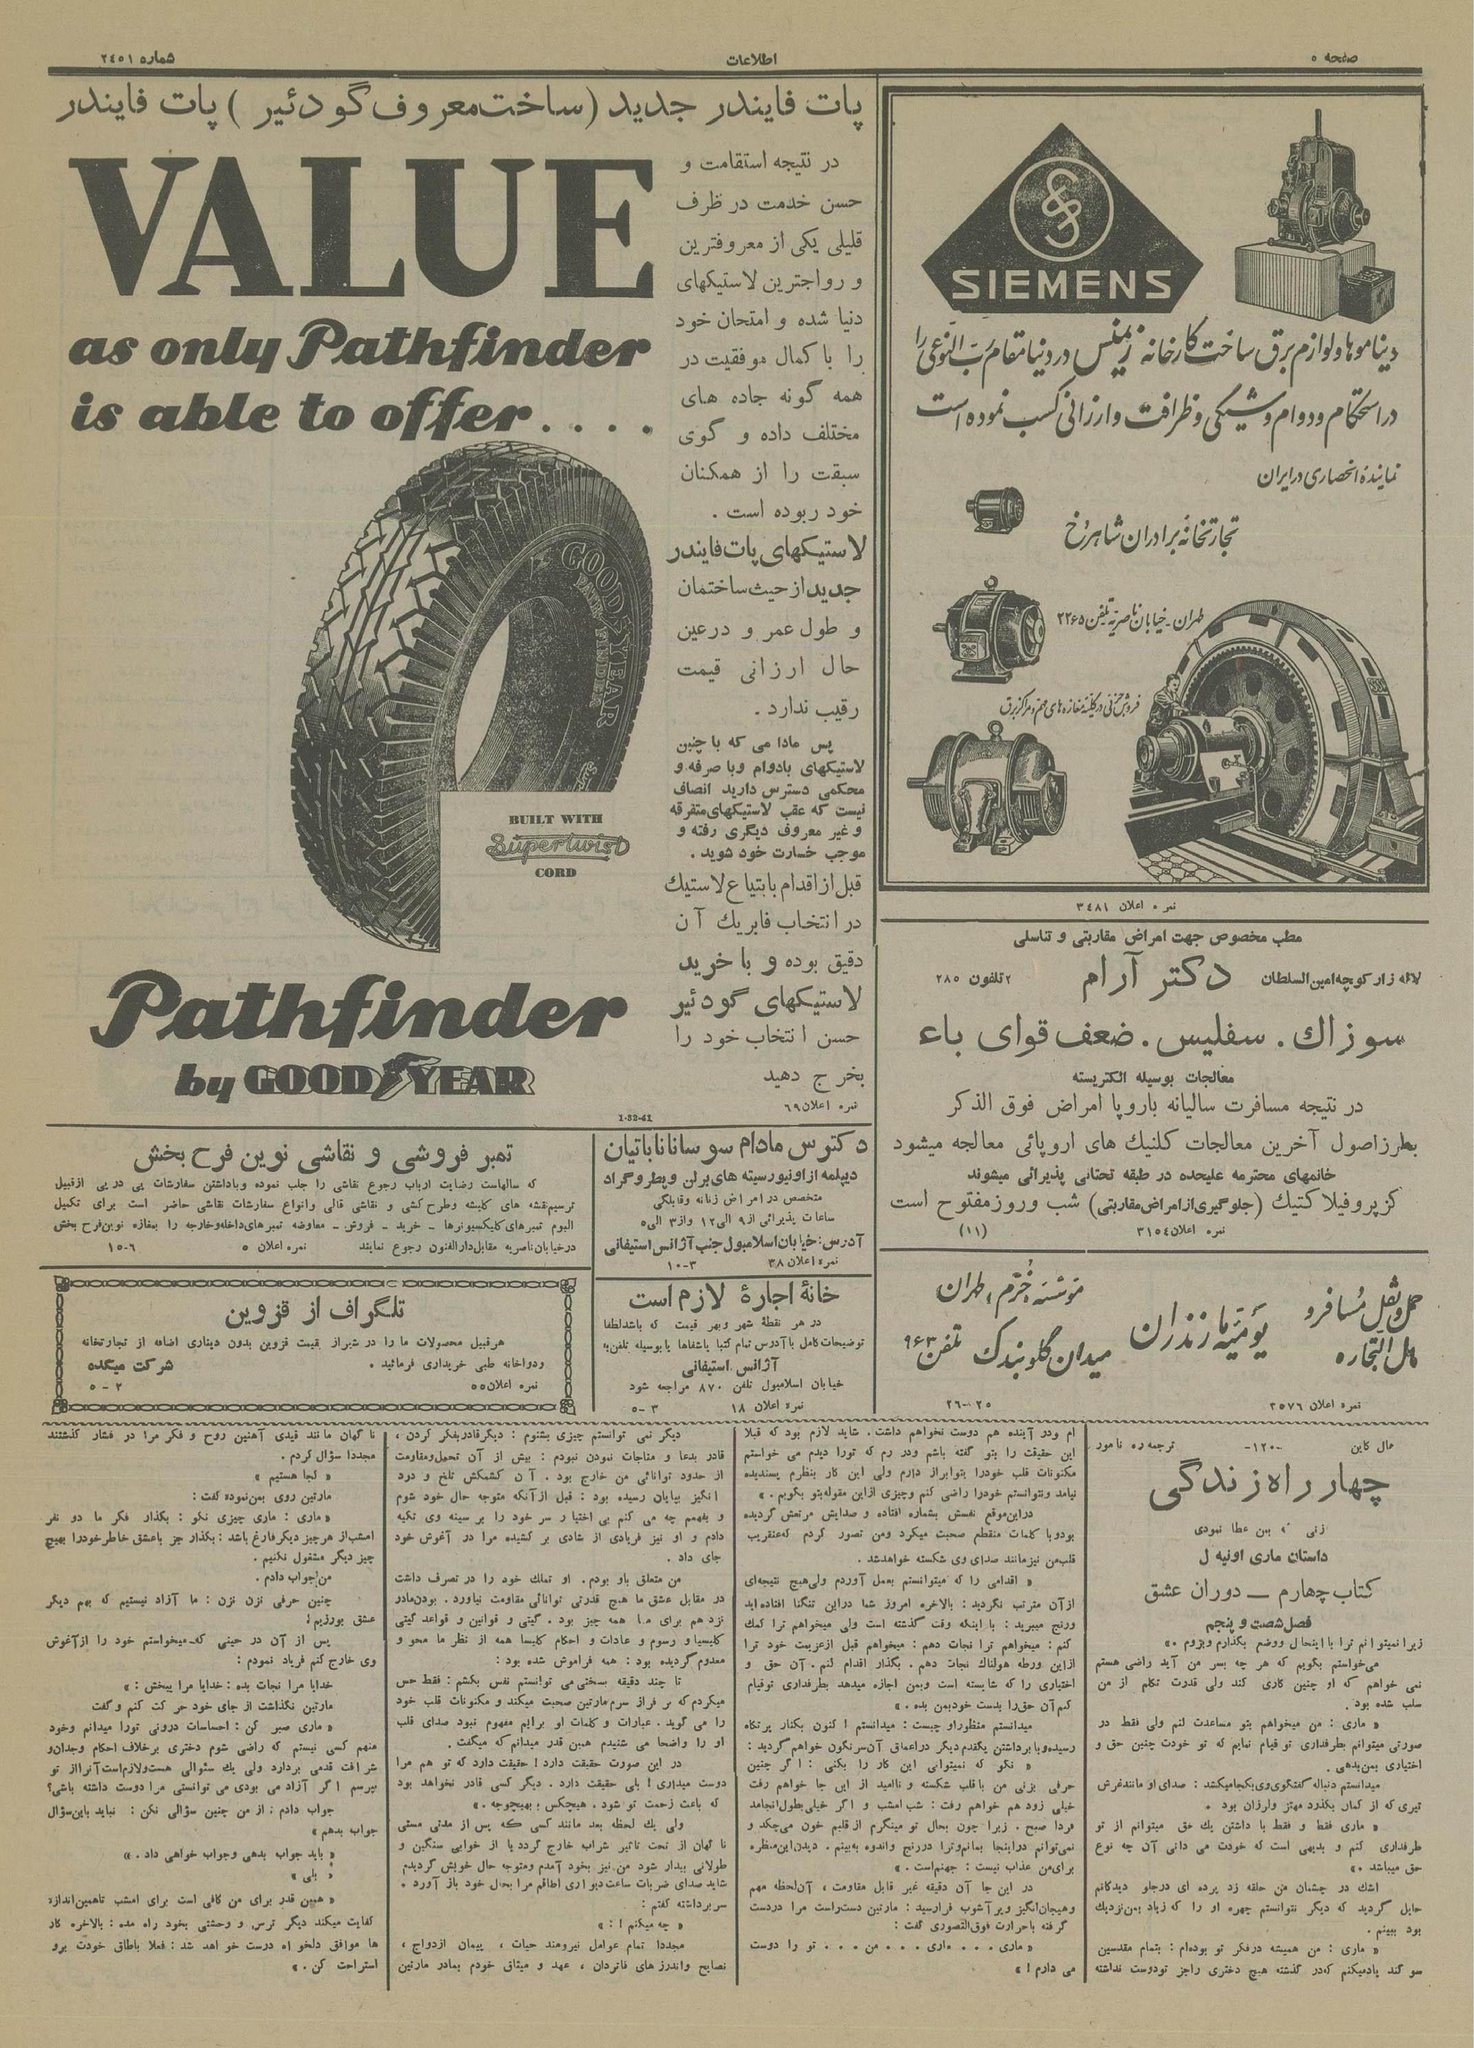 صفحه ۵
اطلاعات
شماره ۲٤٥۱
SIEMENS
دینامو ها و لوازم برق ساخت کارخانه زیمنس در دنیا مقام رب النوعی را
در استحکام و دوام و شیکی و ظرافت و ارزانی کسب نموده است
نماینده انحصاری در ایران
تجارتخانه برادران شاهرخ
طهران - خیابان ناصریه تلفن ۲۲٦٥
فروش جزئی در کلیه مغازه های مهم و مرکز برق
نمره اعلان ۳٤۸۱
پات فایندر جدید (ساخت معروف گودئیر) پات فایندر
VALUE
as only Pathfinder
is able to offer....
GOODYEAR
PATHFINDER
BUILT WITH
Supertwist
CORD
Pathfinder
by GOODYEAR
1-32-41
در نتیجه استقامت و
حسن خدمت در ظرف
قلیلی یکی از معروفترین
و رواجترین لاستیکهای
دنیا شده و امتحان خود
را با کمال موفقیت در
همه گونه جاده های
مختلف داده و گوی
سبقت را از همکنان
خود ربوده است .
لاستیکهای پات فایندر
جدید از حیث ساختمان
و طول عمر و درعین
حال ارزانی قیمت
رقیب ندارد .
پس مادا می که با چنین
لاستیکهای بادوام وبا صرفه و
محکمی دسترس دارید انصاف
نیست که عقب لاستیکهای متفرقه
و غیر معروف دیگری رفته و
موجب خسارت خود شوید .
قبل از اقدام بابتیاع لاستیک
در انتخاب فابریك آن
دقیق بوده و با خرید
لاستیکهای گودئیر
حسن انتخاب خود را
بخرج دهید
نمره اعلان ٦۹
مطب مخصوص جهت امراض مقاربتی و تناسلی
لاله زار کوچه امین السلطان دکتر آرام ۲تلفون ۲۸۵
سوزاك . سفلیس . ضعف قوای باء
معالجات بوسیله الکتریسته
در نتیجه مسافرت سالیانه باروپا امراض فوق الذکر
بطرز اصول آخرین معالجات کلنیك های اروپائی معالجه میشود
خانمهای محترمه علیحده در طبقه تحتانی پذیرائی میشوند
کزپروفیلاکتیك (جلوگیری از امراض مقاربتی) شب وروز مفتوح است
نمره اعلان ۳۱٥٤ (۱۱)
حمل و نقل مسافر و
مال التجاره
یومیه مازندران
مؤسسه خرم ، طهران
میدان گلوبندک تلفن ۹٦۳
نمره اعلان ۳٥۷٦ ۲٥-۲٦
دکترس مادام سوسانا ناباتیان
دیپلمه از اونیورسیته های برلن و پطروگراد
متخصص در امراض زنانه وقابلگی
ساعات پذیرائی از ۹ الی۱۲ واز۳ الی۵
آدرس : خیابان اسلامبول جنب آژانس استیفانی
نمره اعلان ۳۸ ۳-۱۰
خانۀ اجارۀ لازم است
در هر نقطۀ شهر وبهر قیمت که باشد لطفا
توضیحات کامل با آدرس تمام کتبا یا شفاها یا بوسیله تلفن به
آژانس استیفانی
خیابان اسلامبول تلفن ۸۷۰ مراجعه شود
نمره اعلان ۱۸ ۳-۵
تمبر فروشی و نقاشی نوین فرح بخش
که سالهاست رضایت ارباب رجوع نقاشی را جلب نموده وباداشتن سفارشات پی در پی ازقبیل
ترسیم نقشه های کلیشه وطرح کشی و نقاشی قالی وانواع سفارشات نقاشی حاضر است برای تکمیل
البوم تمبرهای کلیکسیونرها - خرید - فروش - معاوضه تمبرهای داخله وخارجه را بمغازه نوین فرح بخش
درخیابان ناصریه مقابل دارالفنون رجوع نمایند نمره اعلان ۵ ٦-۱٥
تلگراف از قزوین
هرقبیل محصولات ما را در شیراز بقیمت قزوین بدون دیناری اضافه از تجارتخانه
ودواخانه طبی خریداری فرمائید . شرکت میکده
نمره اعلان ٥٥ ۲-۵
مال کاین -۱۲۰- ترجمه ره نامور
چهار راه زندگی
داستان ماری اونیه ل
کتاب چهارم — دوران عشق
فصل شصت و پنجم
زیرا نمیتوانم ترا با اینحال ووضع بگذارم وبروم .»
میخواستم بگویم که هر چه بسر من آید راضی هستم
نمی خواهم که او چنین کاری کند ولی قدرت تکلم از من
سلب شده بود .
« ماری : من میخواهم بتو مساعدت کنم ولی فقط در
صورتی میتوانم بطرفداری تو قیام نمایم که تو خودت چنین حق و
اختیاری بمن بدهی .
میدانستم دنباله گفتگوی وی بکجا میکشد : صدای او مانند غرش
تیری که از کمان بگذرد مهتز ولرزان بود .
« ماری فقط و فقط با داشتن یك حق میتوانم از تو
طرفداری کنم و بدیهی است که خودت می دانی آن چه نوع
حق میباشد .»
اشك در چشمان من حلقه زد پرده ای درجلو دیدگانم
حایل گردید که دیگر نتوانستم چهره او را که زیاد بمن نزدیك
بود ببینم .
« ماری : من همیشه درفکر تو بوده ام : بتمام مقدسین
سوگند یاد میکنم که در گذشته هیچ دختری را جز تو دوست نداشته
ام ودر آینده هم دوست نخواهم داشت . شاید لازم بود که قبلا
این حقیقت را بتو گفته باشم ودر رم که تورا دیدم می خواستم
مکنونات قلب خودرا بتو ابراز دارم ولی این کار بنظرم پسندیده
نیامد ونتوانستم خودرا راضی کنم وچیزی ازاین مقوله بتو بگویم .»
دراین موقع نفسش بشماره افتاده و صدایش مرتعش گردیده
بودوبا کلمات منقطع صحبت میکرد ومن تصور کردم که عنقریب
قلب من نیز مانند صدای وی شکسته خواهد شد .
« اقدامی را که میتوانستم بعمل آوردم ولی هیچ نتیجه ای
ازآن مترتب نگردید : بالاخره امروز شما دراین تنگنا افتاده اید
ورنج میبرید : با اینکه وقت گذشته است ولی میخواهم ترا کمك
کنم : میخواهم ترا نجات دهم : میخواهم قبل ازعزیمت خود ترا
ازاین ورطه هولناك نجات دهم . بگذار اقدام کنم . آن حق و
اختیاری را که شایسته است وبمن اجازه میدهد بطرفداری تو قیام
کنم آن حق را بدست خود بمن بده .»
میدانستم منظور او چیست : میدانستم اکنون بکنار پرتگاه
رسیده وبا برداشتن یکقدم دیگر دراعماق آن سرنگون خواهم گردید :
« نگو که نمیتوانی این کار را بکنی : اگر چنین
حرفی بزنی من با قلب شکسته و ناامید از این جا خواهم رفت
خیلی زود هم خواهم رفت : شب امشب و اگر خیلی بطول انجامد
فردا صبح . زیرا چون بحال تو مینگرم از قلبم خون می چکد و
نمی توانم دراینجا بمانم وترا دررنج واندوه به بینم . دیدن این منظره
برای من عذاب نیست : جهنم است .»
در این جا آن دقیقه غیر قابل مقاومت ، آن لحظه مهم
وهیجان انگیز وپر آشوب فرارسید : مارتین دست راست مرا دردست
گرفته با حرارت فوق التصوری گفت :
« ماری . . . . ماری . . . من . . . تو را دوست
می دارم ! »
دیگر نمی توانستم چیزی بشنوم : دیگر قادر بفکر کردن ،
قادر بدعا و مناجات نمودن نبودم : بیش از آن تحمل ومقاومت
از حدود توانائی من خارج بود . آن کشمکش تلخ و درد
انگیز بپایان رسیده بود : قبل از آنکه متوجه حال خود شوم
و بفهمم چه می کنم بی اختیار سر خود را بر سینه وی تکیه
دادم و او نیز فریادی از شادی بر کشیده مرا در آغوش خود
جای داد .
من متعلق باو بودم . او تملك خود را در تصرف داشت
در مقابل عشق ما هیچ قدرتی توانائی مقاومت نیاورد . بودن مادر
نزد هم برای ما همه چیز بود . گیتی و قوانین و قواعد گیتی
کلیسیا و رسوم و عادات و احکام کلیسا همه از نظر ما محو و
معدوم گردیده بود : همه فراموش شده بود :
تا چند دقیقه بسختی می توانستم نفس بکشم : فقط حس
میکردم که بر فراز سرم مارتین صحبت میکند و مکنونات قلب خود
را می گوید . عبارات و کلمات او برایم مفهوم نبود صدای قلب
او را واضحا می شنیدم همین قدر میدانم که میگفت .
در این صورت حقیقت دارد ! حقیقت دارد که تو هم مرا
دوست میداری ! بلی حقیقت دارد . دیگر کسی قادر نخواهد بود
که باعث زحمت تو شود . هیچکس ، بهیچوجه .»
ولی یك لحظه بعد مانند کسی که پس از مدتی مستی
نا گهان از تحت تاثیر شراب خارج گردد یا از خوابی سنگین و
طولانی بیدار شود من نیز بخود آمدم ومتوجه حال خویش گردیدم
شاید صدای ضربات ساعت دیواری اطاقم مرا بحال خود باز آورد .
سر برداشته گفتم :
« چه میکنم ! : »
مجددا تمام عوامل نیرومند حیات ، پیمان ازدواج ،
نصایح واندرزهای ، عهد و میثاق خودم بمادر مارتین
نا گهان مانند قیدی آهنین روح و فکر مرا در فشار گذشتند
مجددا سؤال کردم .
« کجا هستیم »
مارتین روی بمن نموده گفت :
« ماری : ماری چیزی نگو : بگذار فکر ما دو نفر
امشب از هر چیز دیگر فارغ باشد : بگذار جز با عشق خاطر خودرا بهیچ
چیز دیگر مشغول نکنیم .
من جواب دادم .
چنین حرفی نزن نزن : ما آزاد نیستیم که بهم دیگر
عشق بورزیم !
پس از آن در حینی که میخواستم خود را از آغوش
وی خارج کنم فریاد نمودم :
خدایا مرا نجات بده : خدایا مرا ببخش : »
مارتین نگذاشت از جای خود حرکت کنم و گفت
« ماری صبر کن : احساسات درونی تورا میدانم وخود
منهم کسی نیستم که راضی شوم دختری بر خلاف احکام وجدان و
شرافت قدمی بردارد ولی یك سئوالی هست ولازم است آنرا از تو
بپرسم اگر آزاد می بودی می توانستی مرا دوست داشته باشی؟
جواب دادم : از من چنین سؤالی نکن : نباید باین سؤال
جواب بدهم »
« باید جواب بدهی وجواب خواهی داد . »
« بلی »
« همین قدر برای من کافی است برای امشب تا همین اندازه
کفایت میکند دیگر ترس و وحشتی بخود راه مده : بالاخره کار
ها موافق دلخواه درست خواهد شد : فعلا باطاق خودت برو
استراحت کن . »